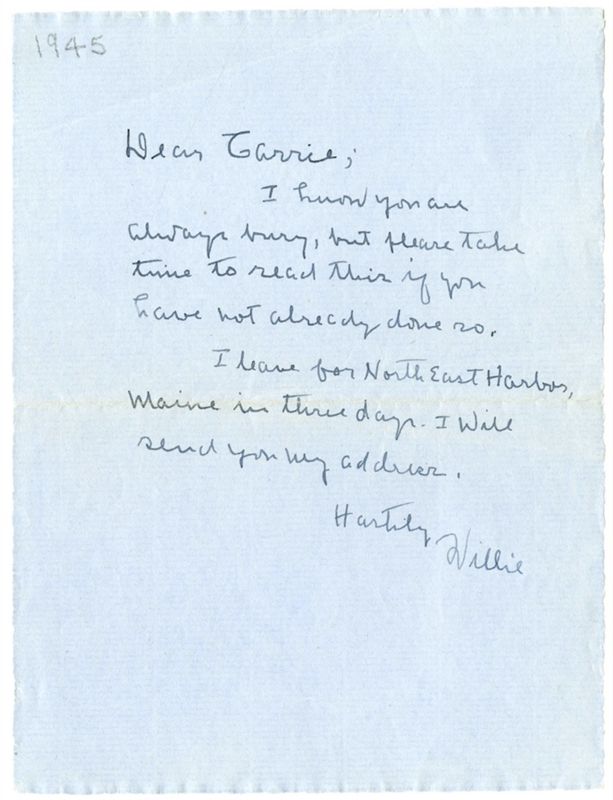 1945
Dear Carrie;
I know you are
always busy, but please take
time to read this if you
have not already done so.
I leave for North East Harbor,
Maine in three days. I will
send you my address.
Hastily
Willie